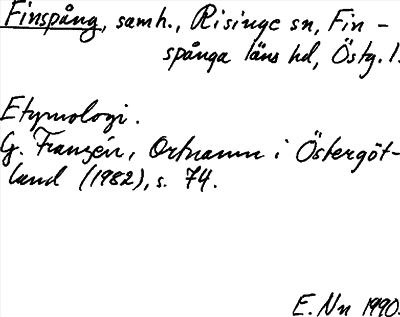 Finspång, samh., Risinge sn, Fin-
spånga läns hd, Östg. l.
Etymologi.
G. Franzén, Ortnamn i Östergöt-
land (1982), s. 74.
E. Nn 1990.